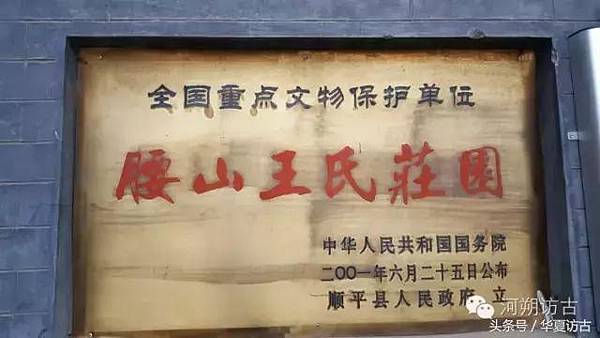 全国重点文物保护单位
腰山王氏莊园
中华人民共和国国务院
二〇〇一年六月二十五日公布
顺平县人民政府 立
河朔访古
头条号/华夏访古